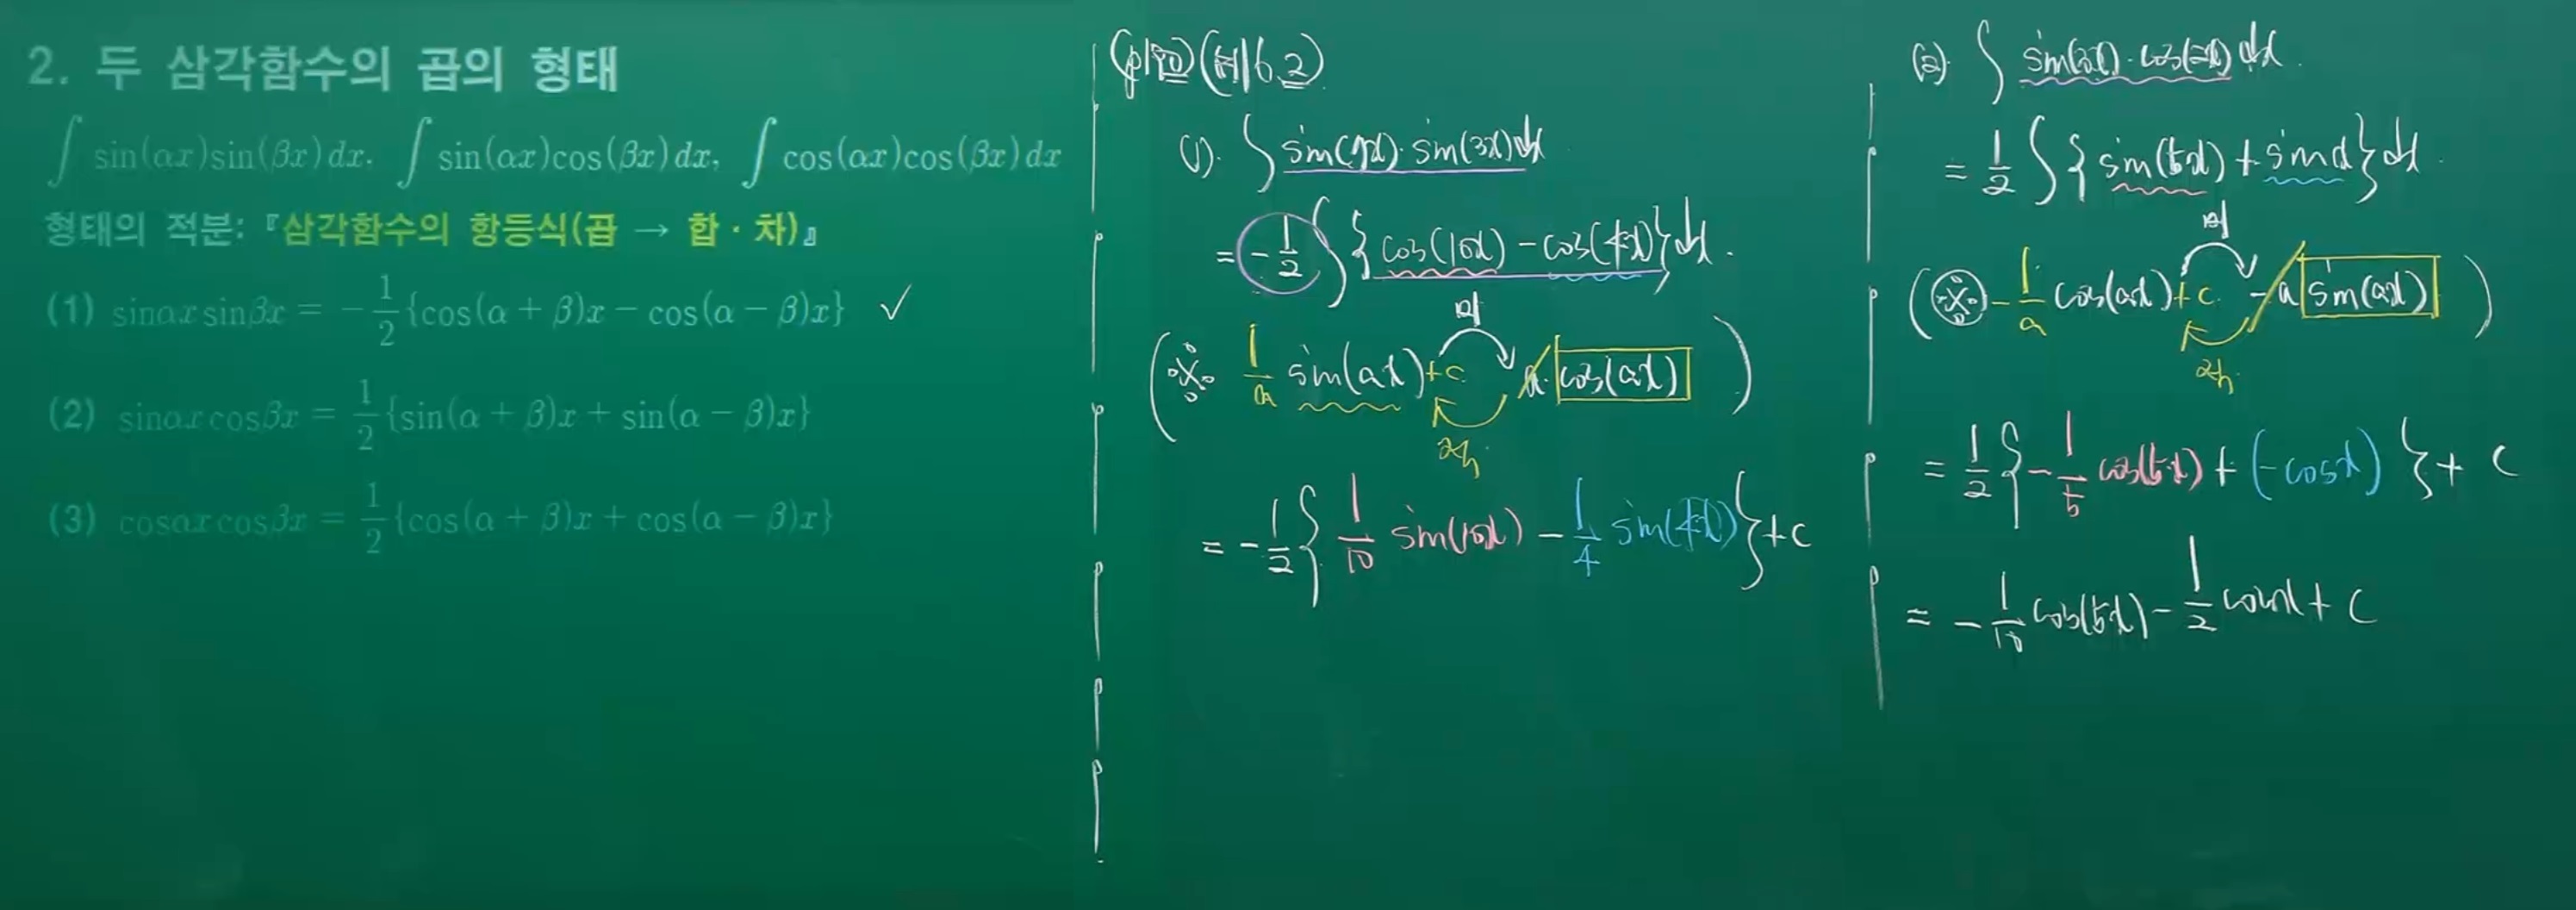 2. 두 삼각함수의 곱의 형태
∫ sin(αx)sin(βx)dx, ∫ sin(αx)cos(βx)dx, ∫ cos(αx)cos(βx)dx
형태의 적분: 『삼각함수의 항등식(곱 → 합 · 차)』
(1) sinαx sinβx = -1/2{cos(α + β)x - cos(α - β)x} ✓
(2) sinαx cosβx = 1/2{sin(α + β)x + sin(α - β)x}
(3) cosαx cosβx = 1/2{cos(α + β)x + cos(α - β)x}
(1). ∫ sin(7x)·sin(3x)dx
= -1/2 ∫{cos(10x) - cos(4x)}dx.
(※ 1/a sin(ax)+c a·cos(ax))
미
적
= -1/2{1/10 sin(10x) - 1/4 sin(4x)}+c
(2). ∫ sin(3x)·cos(2x)dx.
= 1/2 ∫{sin(5x)+sinx}dx.
미
(※ -1/a cos(ax)+c -a sin(ax))
적
= 1/2{-1/5 cos(5x)+(-cosx)}+c
= -1/10 cos(5x) - 1/2 cosx + c